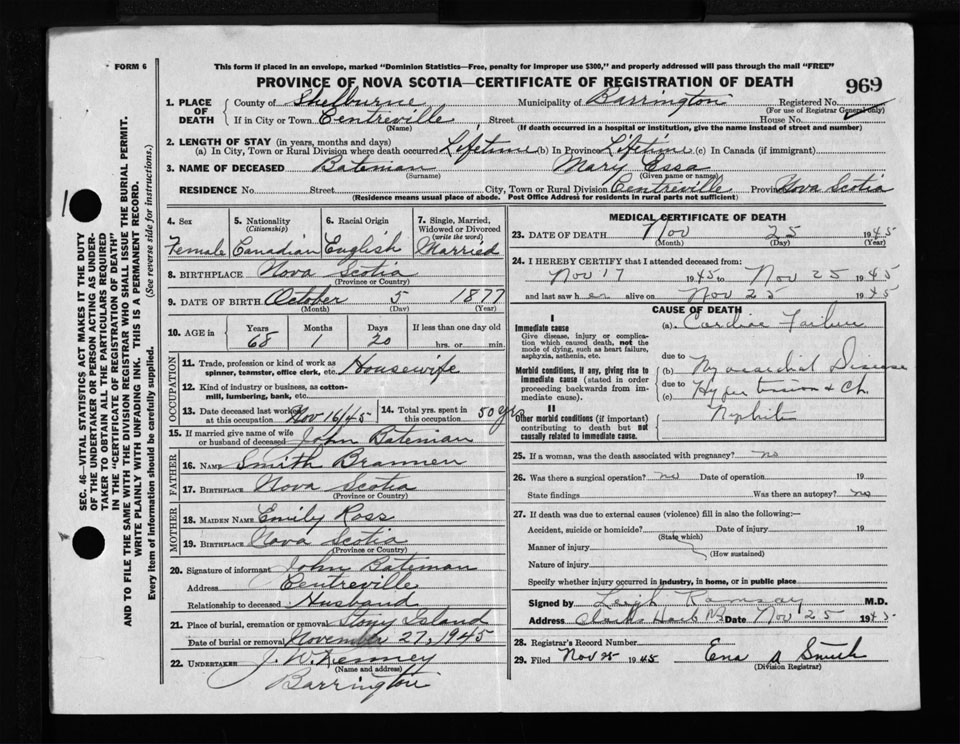 FORM 6
This form if placed in an envelope, marked "Dominion Statistics—Free, penalty for improper use $300," and properly addressed will pass through the mail "FREE"
PROVINCE OF NOVA SCOTIA—CERTIFICATE OF REGISTRATION OF DEATH
969
1. PLACE OF DEATH County of Shelburne Municipality of Barrington Registered No.
(For use of Registrar General only)
If in City or Town Centreville Street House No.
(Name) (If death occurred in a hospital or institution, give the name instead of street and number)
2. LENGTH OF STAY (in years, months and days)
(a) In City, Town or Rural Division where death occurred Lifetime (b) In Province Lifetime (c) In Canada (if immigrant)
3. NAME OF DECEASED Bateman Mary Essa
(Surname) (Given name or names)
RESIDENCE No. Street City, Town or Rural Division Centreville Province Nova Scotia
(Residence means usual place of abode. Post Office Address for residents in rural parts not sufficient)
4. Sex 5. Nationality 6. Racial Origin 7. Single, Married,
(Citizenship) Widowed or Divorced
(write the word)
Female Canadian English Married
8. BIRTHPLACE Nova Scotia
(Province or Country)
9. DATE OF BIRTH October 5 1877
(Month) (Day) (Year)
10. AGE in Years Months Days If less than one day old
68 1 20 hrs. or min.
OCCUPATION
11. Trade, profession or kind of work as
spinner, teamster, office clerk, etc. Housewife
12. Kind of industry or business, as cotton-
mill, lumbering, bank, etc.
13. Date deceased last worked
at this occupation Nov 16/45
14. Total yrs. spent in
this occupation 50 yrs
15. If married give name of wife
or husband of deceased John Bateman
FATHER
16. NAME Smith Brannen
17. BIRTHPLACE Nova Scotia
(Province or Country)
MOTHER
18. MAIDEN NAME Emily Ross
19. BIRTHPLACE Nova Scotia
(Province or Country)
20. Signature of informant John Bateman
Address Centreville
Relationship to deceased Husband
21. Place of burial, cremation or removal Stony Island
Date of burial or removal November 27, 1945
22. UNDERTAKER J. W. Kenney
(Name and address)
Barrington
MEDICAL CERTIFICATE OF DEATH
23. DATE OF DEATH Nov 25 1945
(Month) (Day) (Year)
24. I HEREBY CERTIFY that I attended deceased from:
Nov 17 1945 to Nov 25 1945
and last saw her alive on Nov 25 1945
CAUSE OF DEATH
I
Immediate cause
Give disease, injury or complica-
tion which caused death, not the
mode of dying, such as heart failure,
asphyxia, asthenia, etc.
(a) Cardiac Failure
due to
Morbid conditions, if any, giving rise to
immediate cause (stated in order
proceeding backwards from im-
mediate cause).
(b) Myocardial Disease
due to
(c) Hypertension & Ch.
II
Other morbid conditions (if important)
contributing to death but not
causally related to immediate cause.
Nephritis
25. If a woman, was the death associated with pregnancy? no
26. Was there a surgical operation? no Date of operation 19
State findings Was there an autopsy? no
27. If death was due to external causes (violence) fill in also the following:—
Accident, suicide or homicide? Date of injury 19
(State which)
Manner of injury
(How sustained)
Nature of injury
Specify whether injury occurred in industry, in home, or in public place
Signed by Leigh Ramsay M.D.
Address Clark's Harb NS Date Nov 25 1945
28. Registrar's Record Number
29. Filed Nov 25 1945 Ena A Smith
(Division Registrar)
SEC. 46—VITAL STATISTICS ACT MAKES IT THE DUTY
OF THE UNDERTAKER OR PERSON ACTING AS UNDER-
TAKER TO OBTAIN ALL THE PARTICULARS REQUIRED
IN THE "CERTIFICATE OF REGISTRATION OF DEATH"
AND TO FILE THE SAME WITH THE DIVISION REGISTRAR WHO SHALL ISSUE THE BURIAL PERMIT.
WRITE PLAINLY WITH UNFADING INK. THIS IS A PERMANENT RECORD.
Every item of information should be carefully supplied. (See reverse side for instructions.)